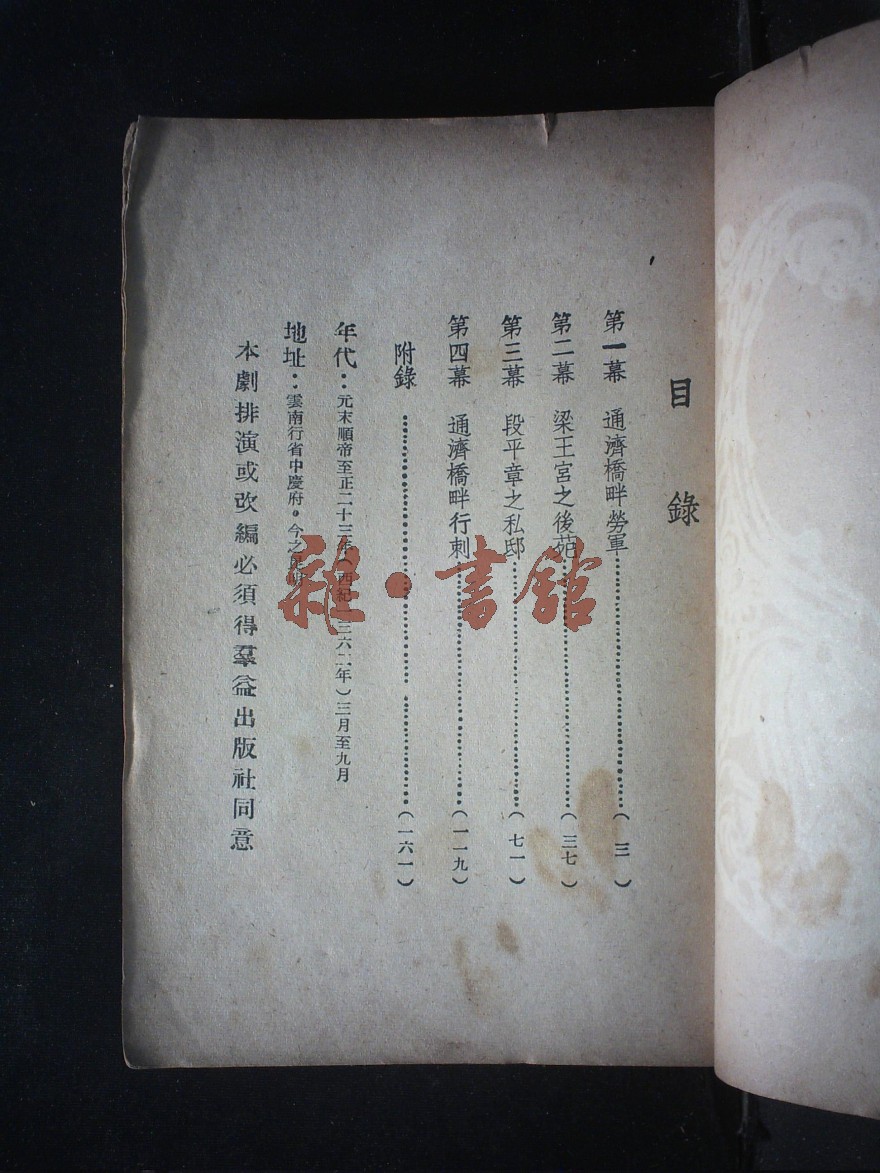 目錄
第一幕 通濟橋畔勞軍……(三)
第二幕 梁王宮之後苑……(三七)
第三幕 段平章之私邸……(七一)
第四幕 通濟橋畔行刺……(一一九)
附錄……(一六一)
年代：元末順帝至正二十三年(西紀一三六二年)三月至九月
地址：雲南行省中慶府。今之昆明
本劇排演或改編必須得羣益出版社同意
雜·書館